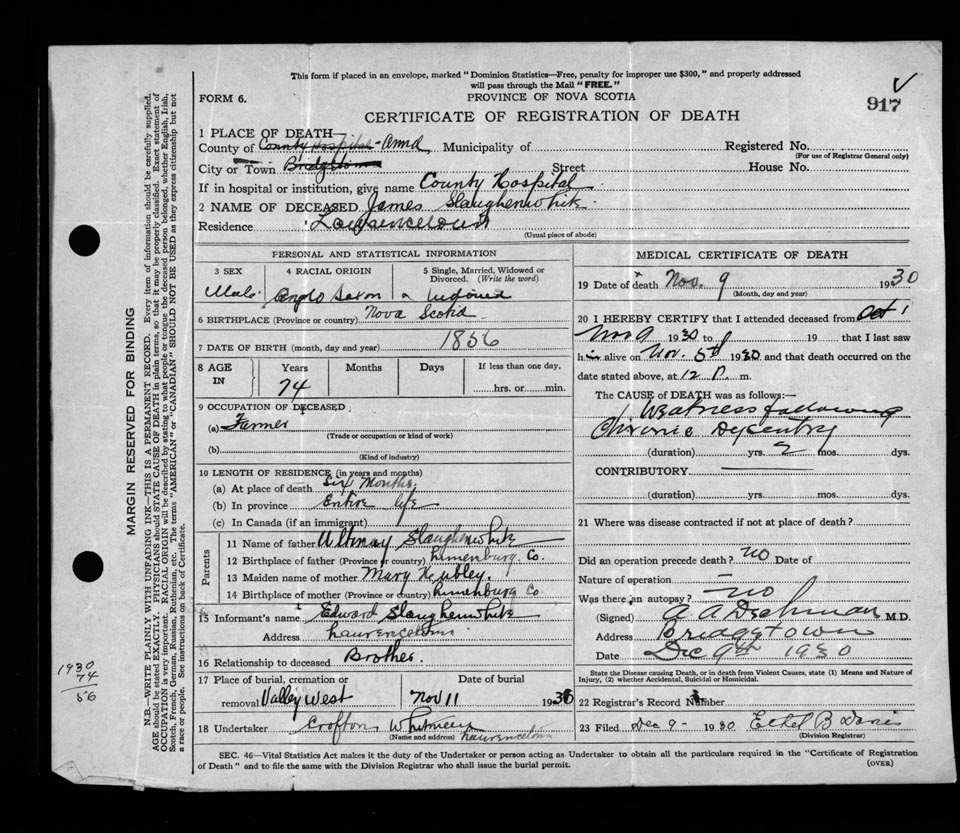 This form if placed in an envelope, marked "Dominion Statistics—Free, penalty for improper use $300," and properly addressed
will pass through the Mail "FREE."
917
FORM 6.
PROVINCE OF NOVA SCOTIA
CERTIFICATE OF REGISTRATION OF DEATH
1 PLACE OF DEATH—
County of County Hospital - Anna Municipality of
Registered No.
(For use of Registrar General only)
City or Town Bridgetown Street House No.
If in hospital or institution, give name County Hospital
2 NAME OF DECEASED James Slaughenwhite
Residence Lawrencetown
(Usual place of abode)
PERSONAL AND STATISTICAL INFORMATION
3 SEX
4 RACIAL ORIGIN
5 Single, Married, Widowed or Divorced. (Write the word)
Male Anglo Saxon Widowed
6 BIRTHPLACE (Province or country) Nova Scotia
7 DATE OF BIRTH (month, day and year) 1856
8 AGE IN
Years Months Days If less than one day,
74 hrs. or min.
9 OCCUPATION OF DECEASED
(a) Farmer
(Trade or occupation or kind of work)
(b)
(Kind of industry)
10 LENGTH OF RESIDENCE (in years and months)
(a) At place of death Six Months
(b) In province Entire life
(c) In Canada (if an immigrant)
Parents
11 Name of father Slaughenwhite
12 Birthplace of father (Province or country) Lunenburg Co.
13 Maiden name of mother Mary
14 Birthplace of mother (Province or country) Lunenburg Co
15 Informant's name Edward Slaughenwhite
Address Lawrencetown
16 Relationship to deceased Brother.
17 Place of burial, cremation or removal Valley West
Date of burial
Nov 11 1930
18 Undertaker Crofton Whitman
(Name and address) Lawrencetown
MEDICAL CERTIFICATE OF DEATH
19 Date of death Nov. 9 1930
(Month, day and year)
20 I HEREBY CERTIFY that I attended deceased from Oct 1
Nov 9 1930 to 19 that I last saw
him alive on Nov. 5th 1930 and that death occurred on the
date stated above, at 12 P. m.
The CAUSE of DEATH was as follows:—
Weakness following
Chronic Dysentry
(duration) yrs. 2 mos. dys.
CONTRIBUTORY
(duration) yrs. mos. dys.
21 Where was disease contracted if not at place of death?
Did an operation precede death? no Date of
Nature of operation —
Was there an autopsy? no
(Signed) A A M.D.
Address Bridgetown
Date Dec 9th 1930
State the Disease causing Death, or in death from Violent Causes, state (1) Means and Nature of
Injury, (2) whether Accidental, Suicidal or Homicidal.
22 Registrar's Record Number
23 Filed Dec 9 - 1930 Ethel B Davis
(Division Registrar)
SEC. 46—Vital Statistics Act makes it the duty of the Undertaker or person acting as Undertaker to obtain all the particulars required in the "Certificate of Registration
of Death" and to file the same with the Division Registrar who shall issue the burial permit.
(OVER)
MARGIN RESERVED FOR BINDING
N.B.—WRITE PLAINLY WITH UNFADING INK—THIS IS A PERMANENT RECORD. Every item of information should be carefully supplied.
AGE should be stated EXACTLY. PHYSICIANS should STATE CAUSE OF DEATH in plain terms, so that it may be properly classified. Exact statement of
OCCUPATION is very important. RACIAL ORIGIN will be described by stating to what people or tongue the deceased person belonged, whether English, Irish,
Scotch, French, German, Russian, Ruthenian, etc. The terms "AMERICAN" or "CANADIAN" SHOULD NOT BE USED as they express citizenship but not
a race or people. See instructions on back of Certificate.
1930
74
56